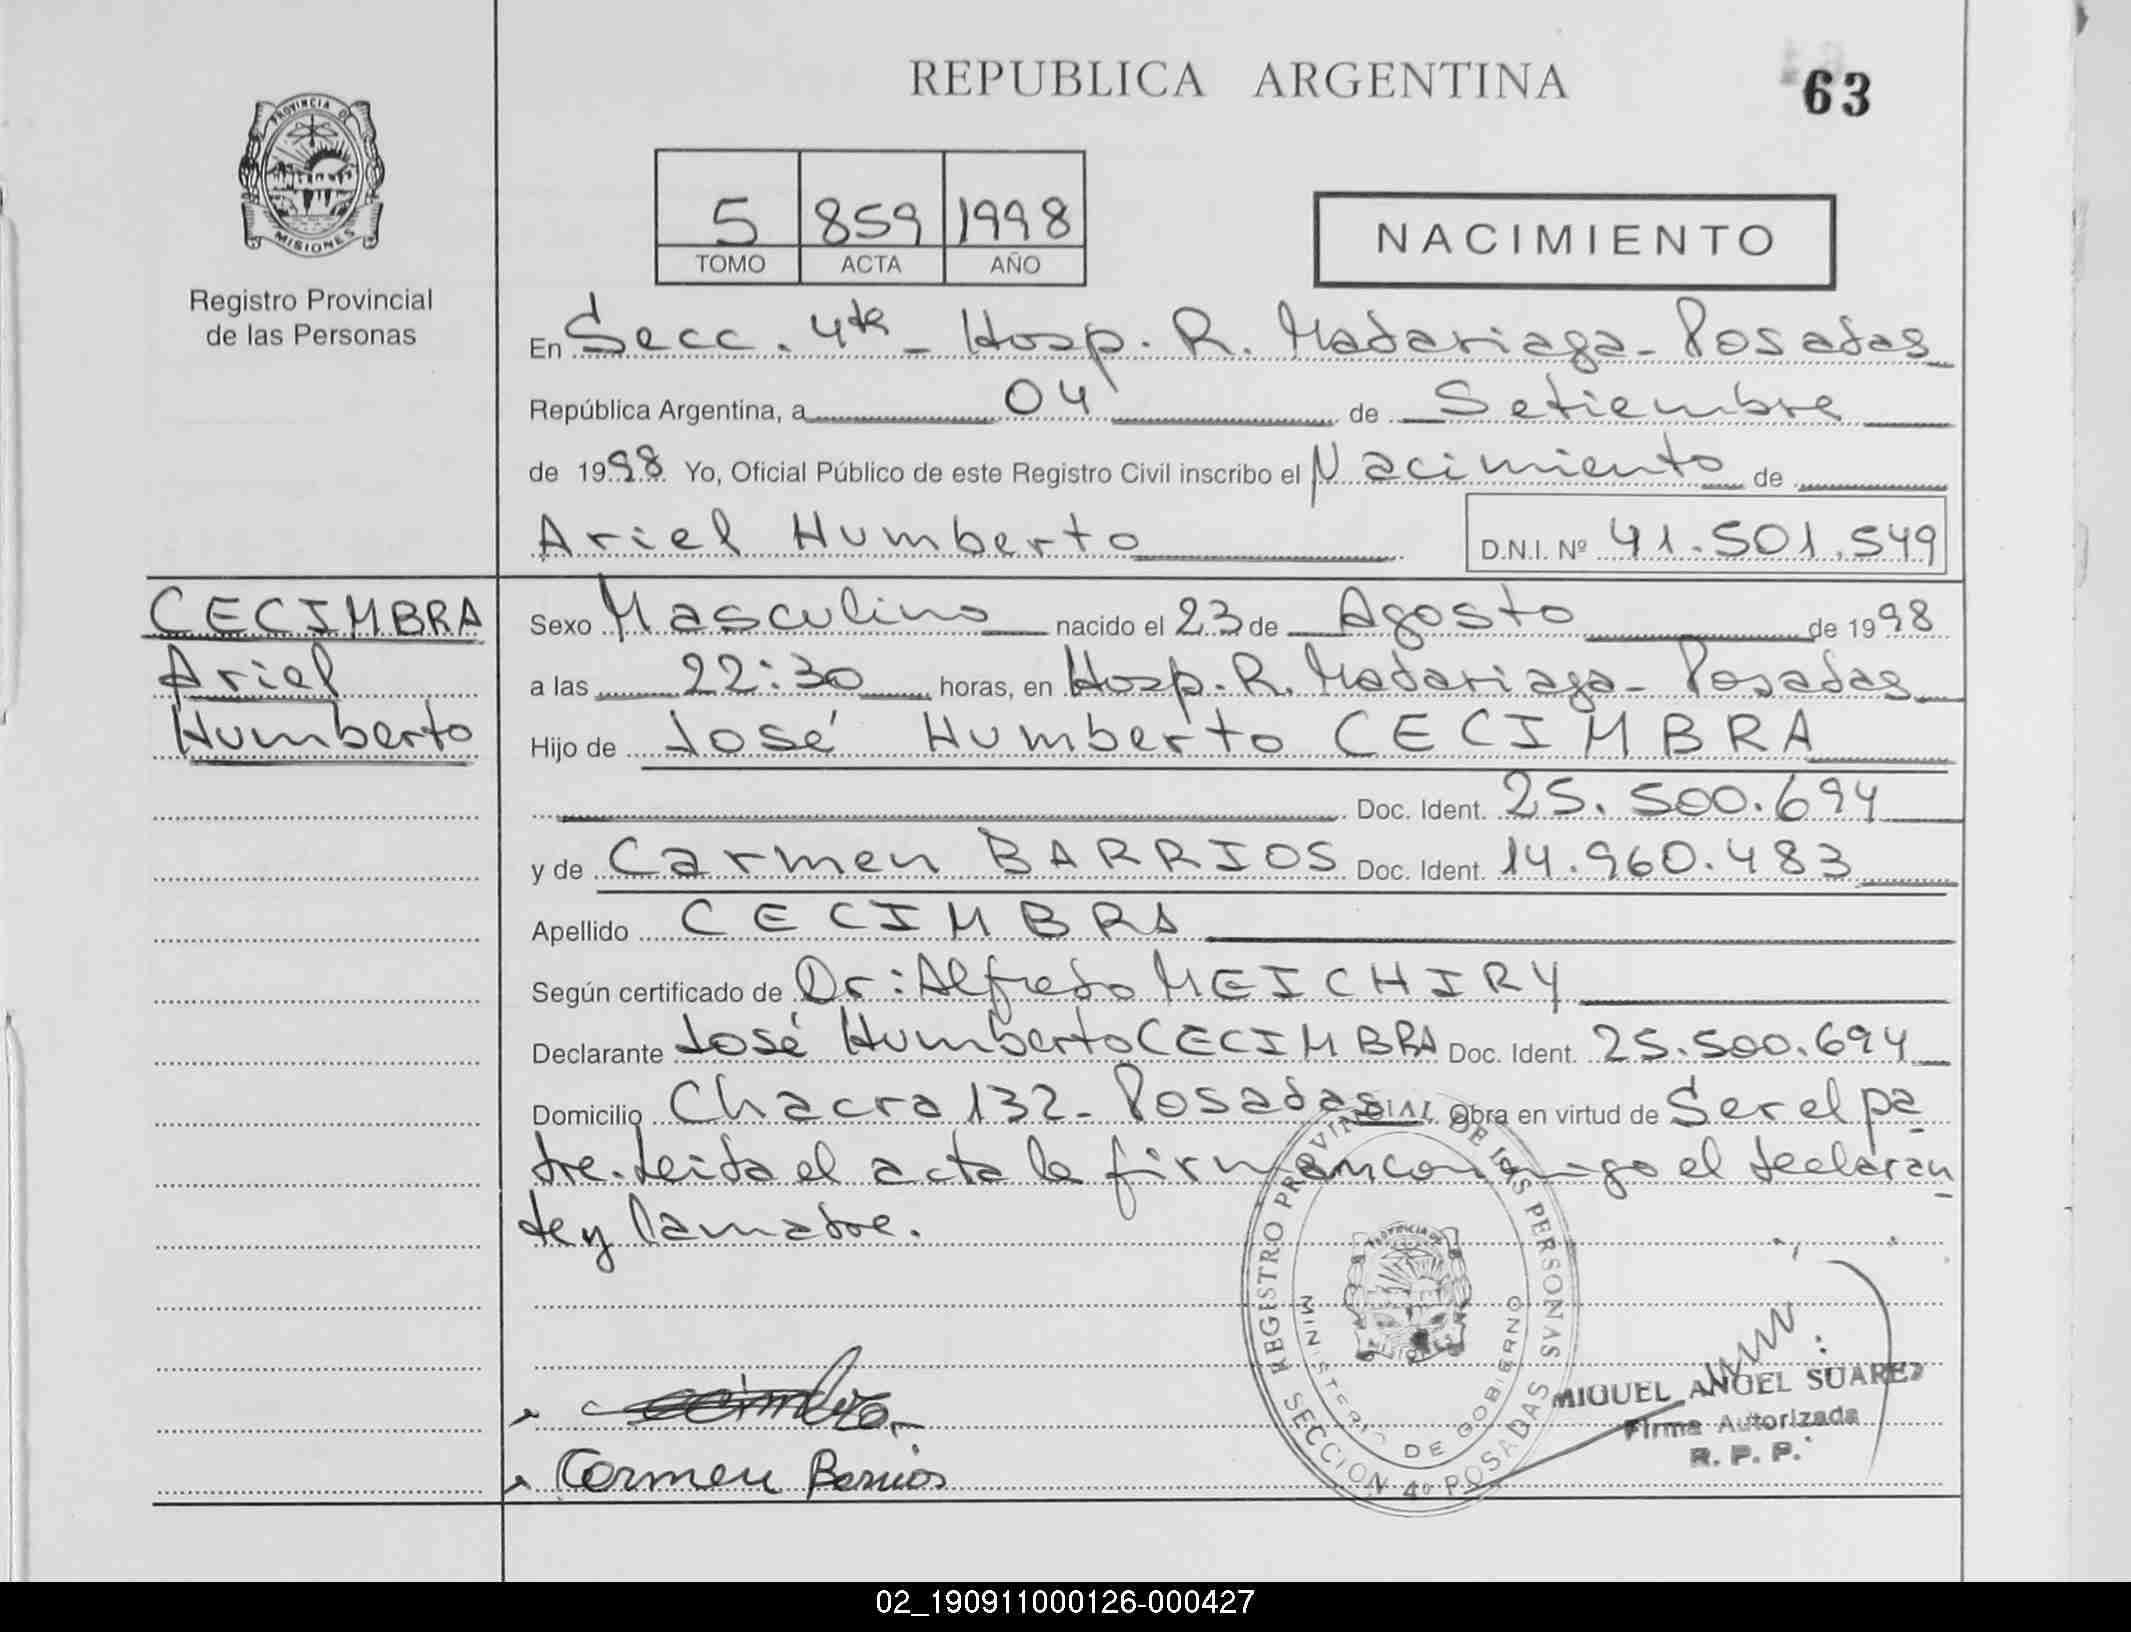 REPUBLICA ARGENTINA
63
PROVINCIA DE
MISIONES
Registro Provincial
de las Personas
5 859 1998
TOMO ACTA AÑO
NACIMIENTO
En Secc. 4ta - Hosp. R. Madariaga - Posadas
República Argentina, a 04 de Setiembre
de 1998 Yo, Oficial Público de este Registro Civil inscribo el Nacimiento de
Ariel Humberto D.N.I. Nº 41.501.549
CECIMBRA
Ariel
Humberto
Sexo Masculino nacido el 23 de Agosto de 1998
a las 22:30 horas, en Hosp. R. Madariaga - Posadas
Hijo de José Humberto CECIMBRA
Doc. Ident. 25.500.694
y de Carmen BARRIOS Doc. Ident. 14.960.483
Apellido CECIMBRA
Según certificado de Dr: Alfredo MEICHIRY
Declarante José Humberto CECIMBRA Doc. Ident. 25.500.694
Domicilio Chacra 132 - Posadas Obra en virtud de Ser el pa
dre. Leida el acta la firman conmigo el declaran
te y la madre.
REGISTRO PROVINCIAL DE LAS PERSONAS
MINISTERIO DE GOBIERNO
SECCION 4º POSADAS
MIGUEL ANGEL SUAREZ
Firma Autorizada
R. P. P.
Carmen Barrios
02_190911000126-000427